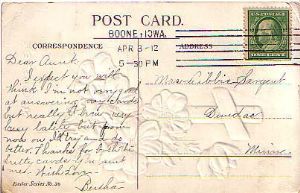 POST CARD.
BOONE, IOWA.
APR 8-12
5-30PM
CORRESPONDENCE
ADDRESS
Dear Aunt.
I expect you will
think I'm not very good
at answering
but really I have been
busy lately but from
now on I'll try to do
better. Thanks for
cards you sent
me. With Love
Bertha
Sargent
Dundas
Minn.
Easter Series No.